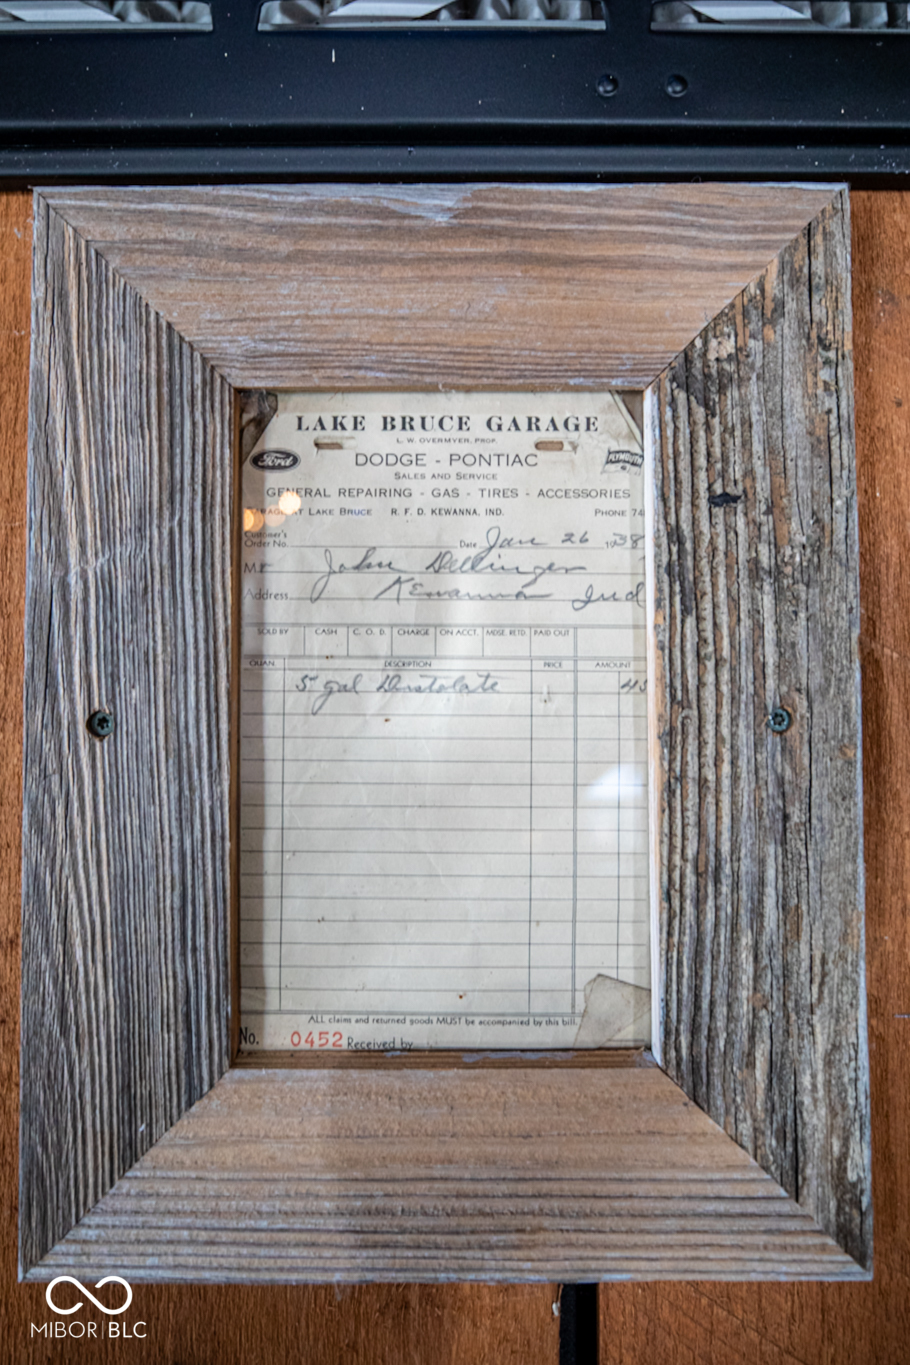 LAKE BRUCE GARAGE
L. W. OVERMYER, PROP.
Ford
DODGE - PONTIAC
PLYMOUTH
SALES AND SERVICE
GENERAL REPAIRING - GAS - TIRES - ACCESSORIES
AT LAKE BRUCE R. F. D. KEWANNA, IND. PHONE 74
Customer's
Order No. Date Jan 26 1938
M r John Dellinger
Address Kewanna Ind
SOLD BY CASH C. O. D. CHARGE ON ACCT. MDSE. RETD. PAID OUT
QUAN. DESCRIPTION PRICE AMOUNT
5 gal Distolate 45
ALL claims and returned goods MUST be accompanied by this bill.
No. 0452 Received by
MIBOR BLC